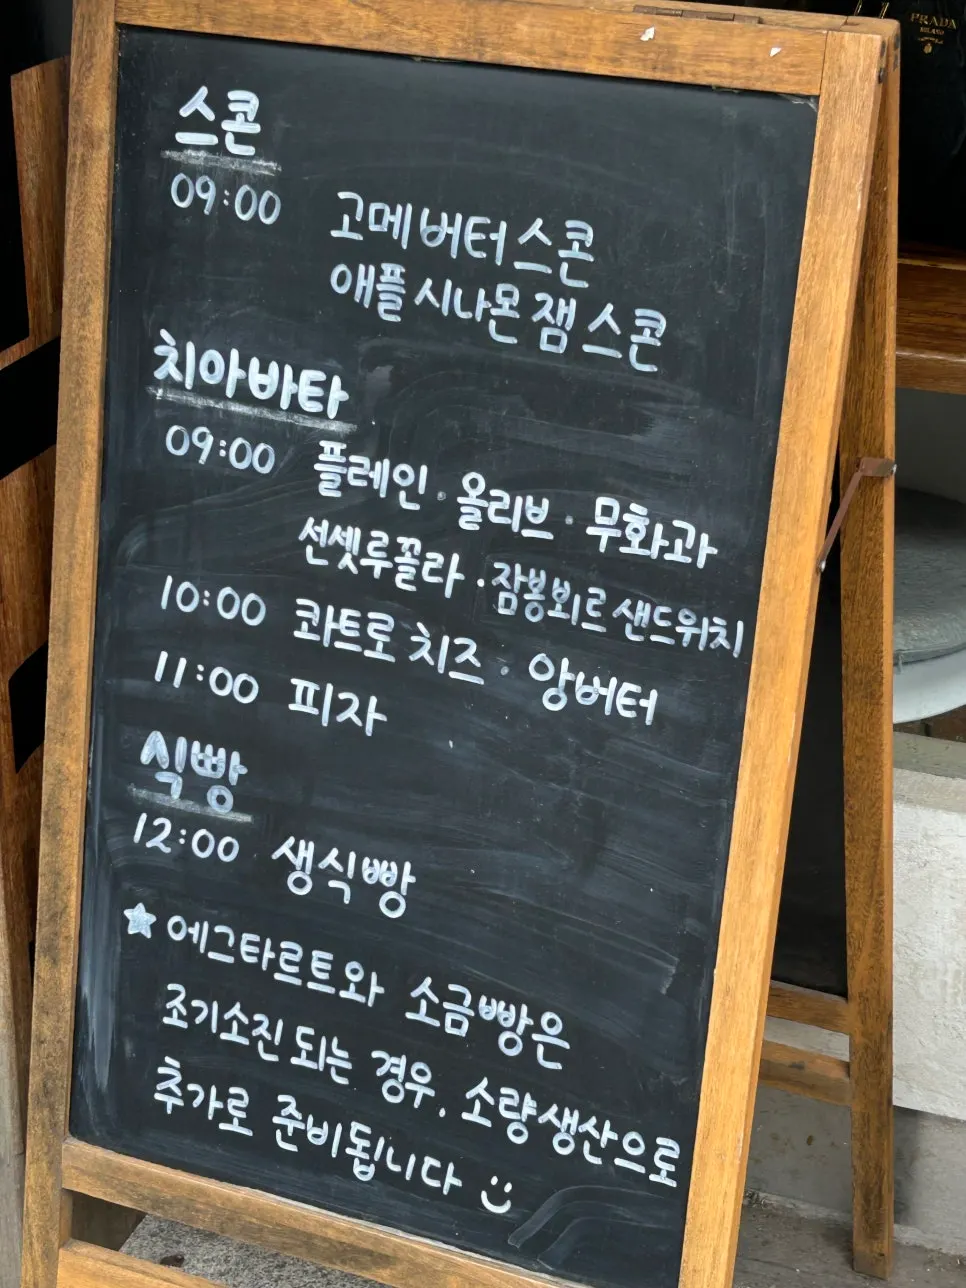 스콘
09:00 고메버터스콘
애플시나몬잼스콘
치아바타
09:00 플레인 · 올리브 · 무화과
선셋루꼴라 · 잠봉뵈르샌드위치
10:00 콰트로치즈 · 앙버터
11:00 피자
식빵
12:00 생식빵
★ 에그타르트와 소금빵은
조기소진되는 경우, 소량생산으로
추가로 준비됩니다 :)
PRADA
MILANO